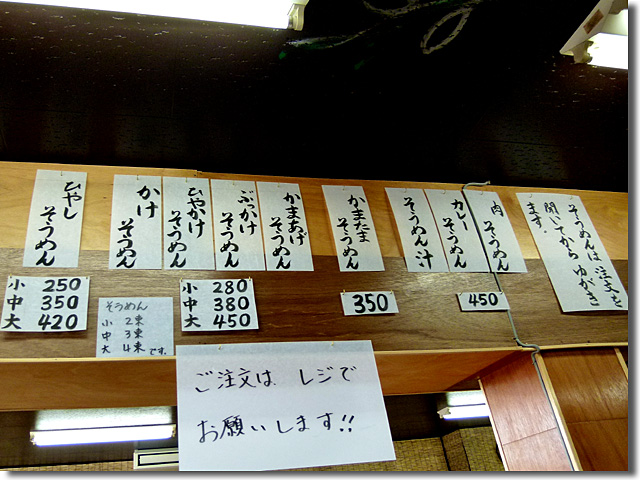 ひやし
そうめん
かけ
そうめん
ひやかけ
そうめん
ぶかけ
そうめん
かまあげ
そうめん
かまたま
そうめん
そうめん汁
カレー
そうめん
肉
そうめん
そうめんは注文を
聞いてからゆがき
ます。
小 250
中 350
大 420
そうめん
小 2束
中 3束
大 4束です。
小 280
中 380
大 450
350
450
ご注文は レジで
お願いします!!